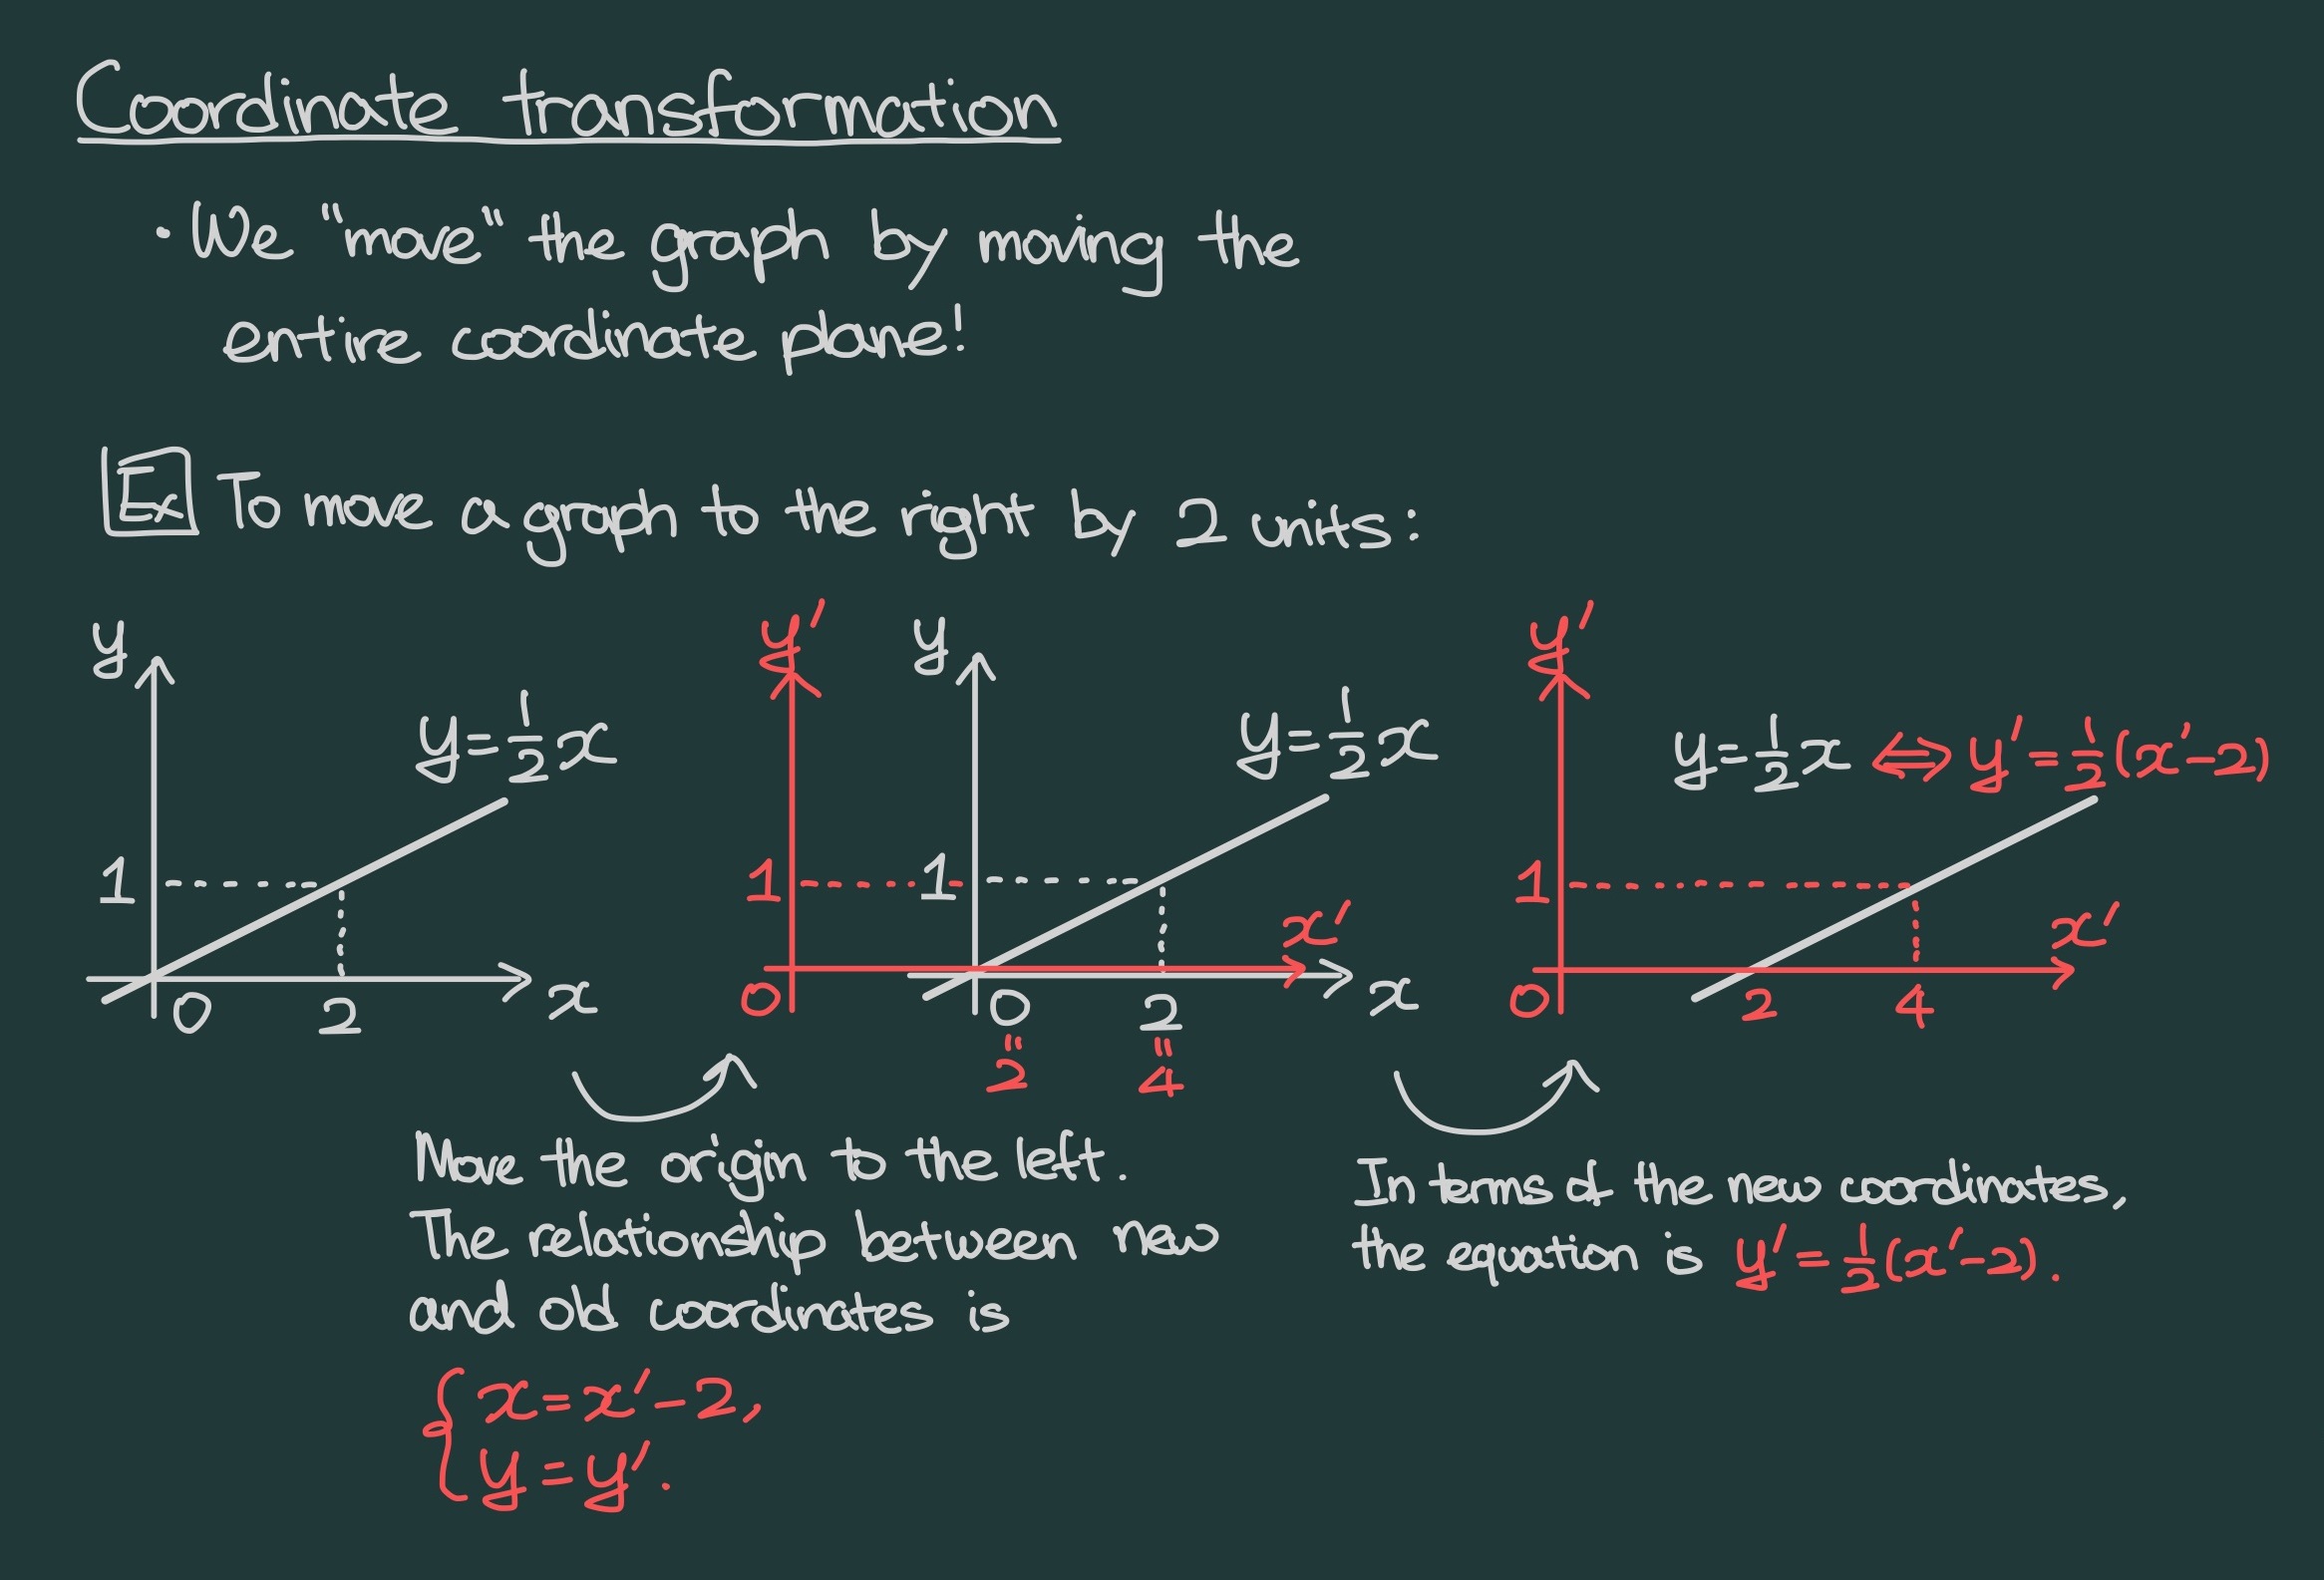 Coordinate transformation
· We "move" the graph by moving the
entire coordinate plane!
Ex To move a graph to the right by 2 units:
y
y = 1/2 x
1
0
2
x
y'
y
y = 1/2 x
1
1
x'
0
0
2
x
=
=
2
4
y'
y = 1/2 x ⇔ y' = 1/2 (x' - 2)
1
x'
0
2
4
Move the origin to the left.
The relationship between new
and old coordinates is
{ x = x' - 2,
y = y'.
In terms of the new coordinates,
the equation is y' = 1/2 (x' - 2).